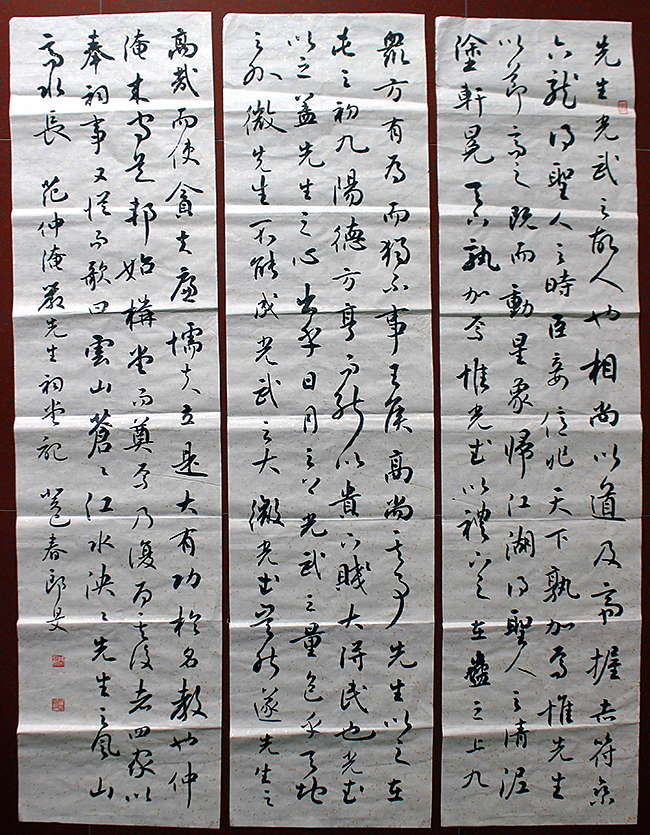 先生光武之故人也相尚以道及帝握赤符乘
六龙得聖人之時臣妾億兆天下孰加焉惟先生
以節高之既而動星象歸江湖得聖人之清泥
塗軒冕天下孰加焉惟光武以禮下之在蠱之上九
眾方有為而獨不事王侯高尚其事先生以之在
屯之初九陽德方亨而能以貴下賤大得民也光武
以之蓋先生之心出乎日月之上光武之量包乎天地
之外微先生不能成光武之大微光武豈能遂先生之
高哉而使貪夫廉懦夫立是大有功於名教也仲
淹來守是邦始構堂而奠焉乃復為其後者四家以
奉祠事又從而歌曰雲山蒼々江水泱々先生之風山
高水長 范仲淹嚴先生祠堂記 春郎旻